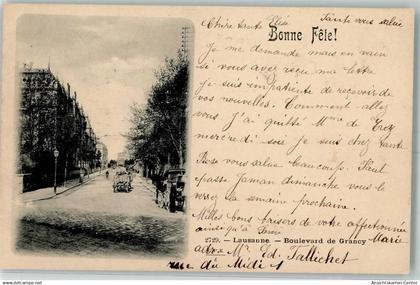 Chère tante Rose
Tante vous salue
Bonne Fête!
Je me demande mais en vain
si vous avez reçu ma lettre
Je suis impatiente de recevoir de
vos nouvelles. Comment allez
vous, j'ai quitté Mme de Trey
mercredi soir je suis chez tante
Rose vous salue beaucoup. Paul
passe Jaman dimanche vous le
verrez la semaine prochaine.
Milles bons baisers de votre affectionnée
Marie
2729. - Lausanne. - Boulevard de Grancy
Mr. Ed. Tallichet
rue du Midi 1
www.ansichtskarten-center.de
Ansichtskarten-Center.de